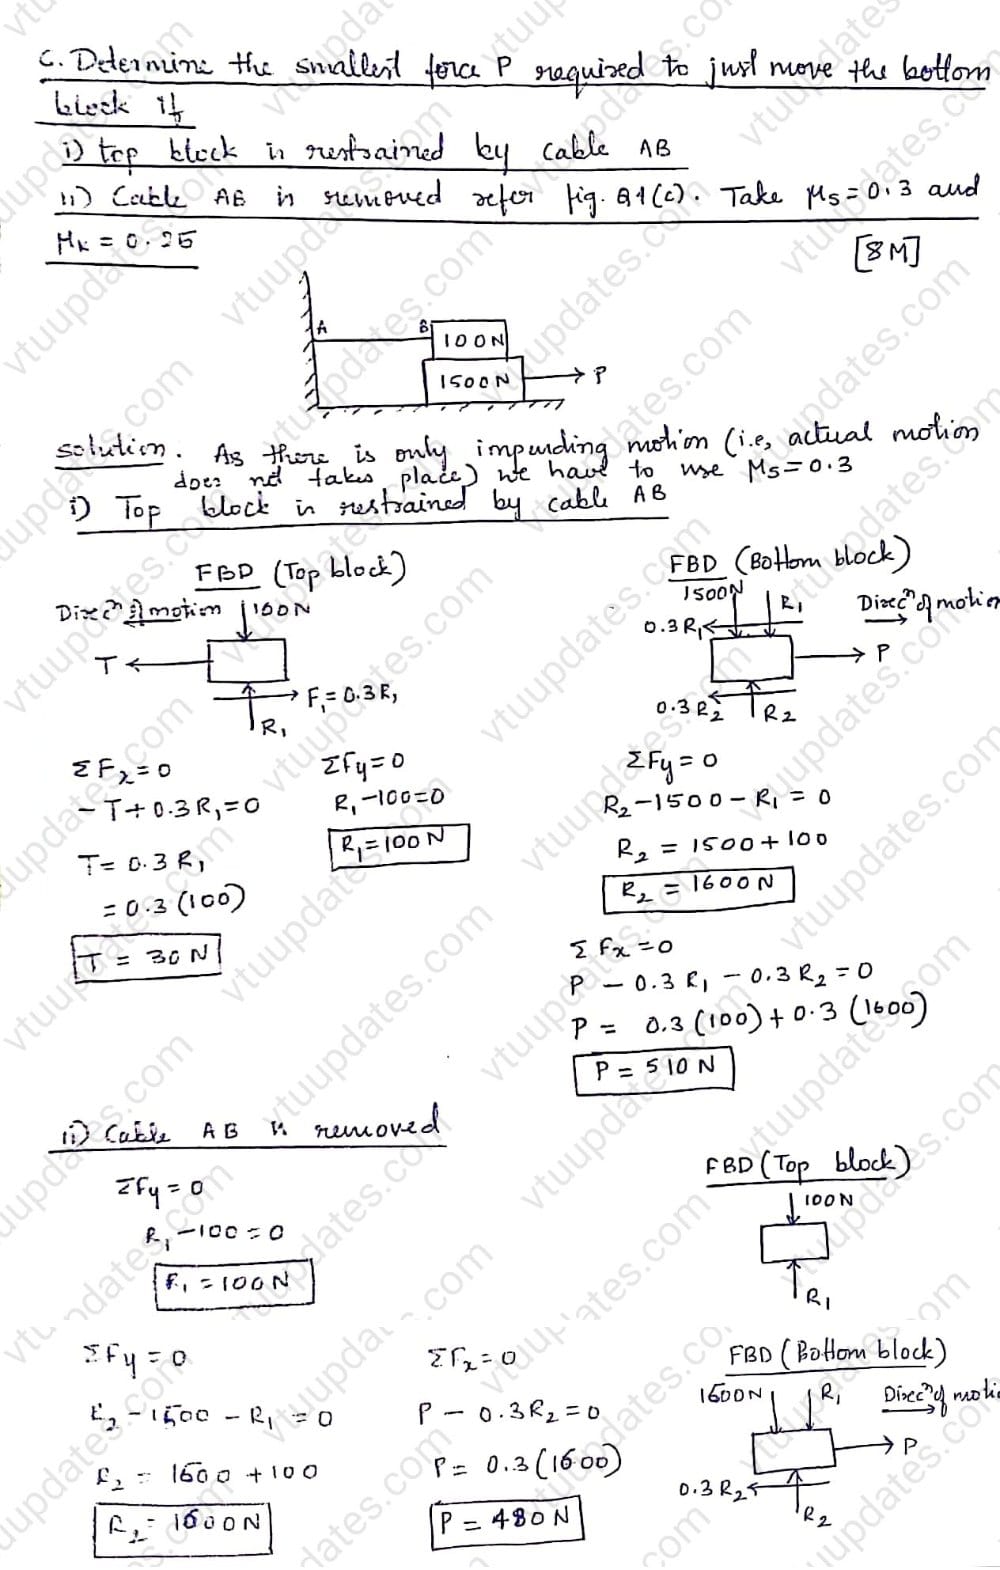 C. Determine the smallest force P required to just move the bottom
block if
i) top block is restrained by cable AB
ii) Cable AB is removed refer fig. Q1(c). Take μs=0.3 and
μk = 0.25
[8M]
A
B
100N
1500N
P
solution. As there is only impending motion (i.e, actual motion
does not takes place) we have to use μs=0.3
i) Top block is restrained by cable AB
FBD (Top block)
Direcⁿ of motion
100N
T
F₁= 0.3R₁
R₁
FBD (Bottom block)
1500N
R₁
Direcⁿ of motion
0.3R₁
P
0.3R₂
R₂
ΣFx=0
-T+0.3R₁=0
T= 0.3R₁
= 0.3(100)
T = 30N
ΣFy=0
R₁-100=0
R₁=100N
ΣFy=0
R₂-1500-R₁ = 0
R₂ = 1500+100
R₂ = 1600N
ΣFx=0
P - 0.3R₁ - 0.3R₂=0
P = 0.3(100)+0.3(1600)
P = 510N
ii) Cable AB is removed
ΣFy=0
R₁-100=0
R₁=100N
FBD (Top block)
100N
R₁
ΣFy=0
R₂-1500-R₁=0
R₂ = 1500+100
R₂= 1600N
ΣFx=0
P-0.3R₂=0
P= 0.3(1600)
P=480N
FBD (Bottom block)
1500N
R₁
Direcⁿ of moti
P
0.3R₂
R₂
vtuupdates.com